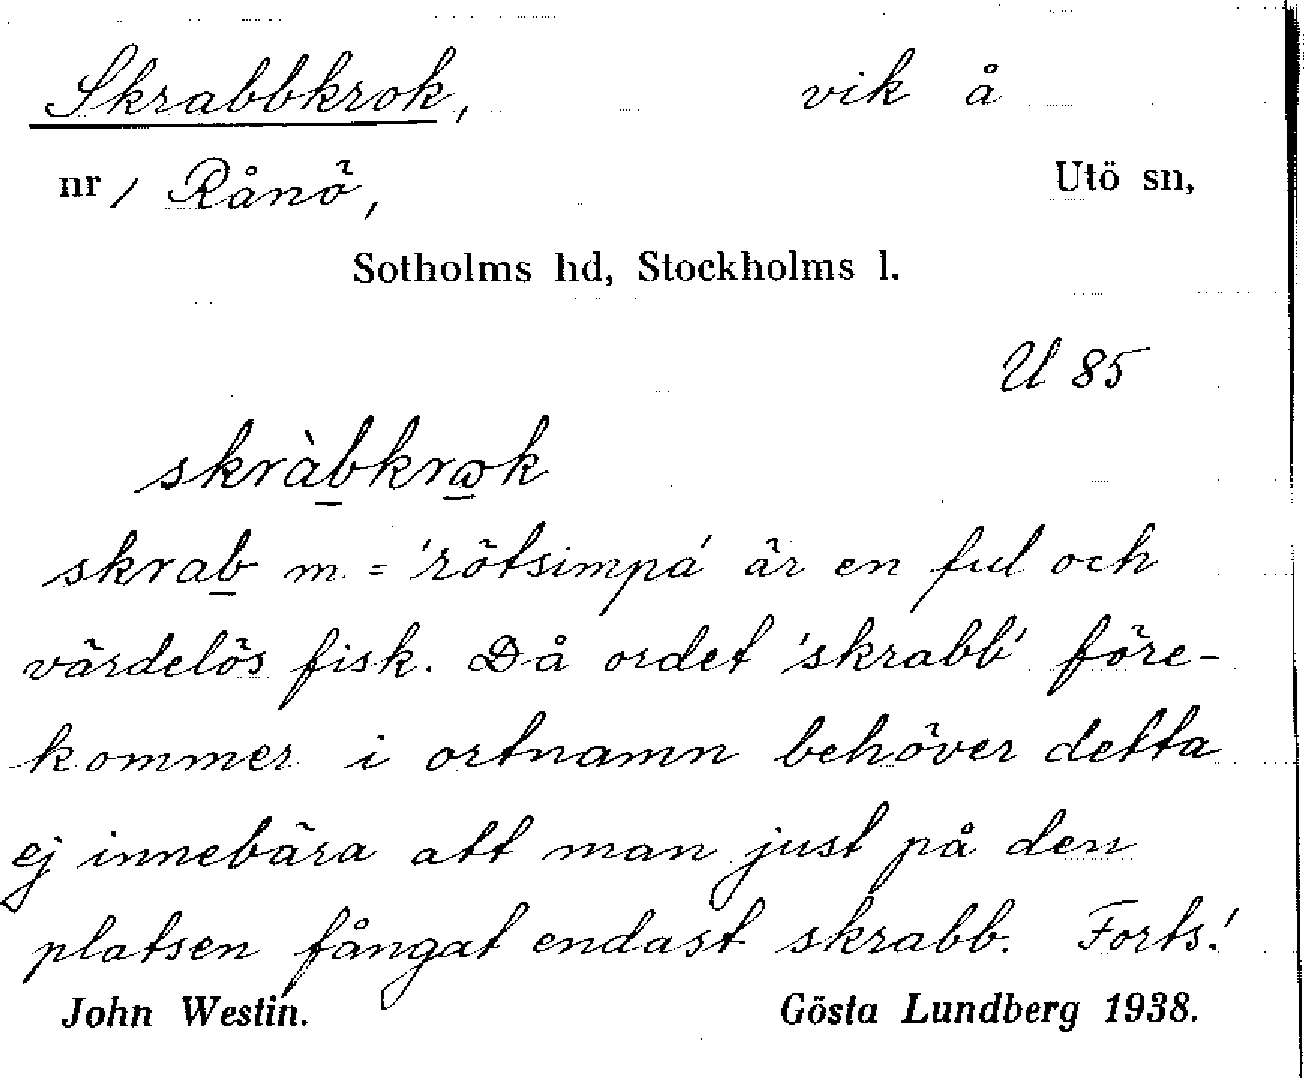 Skrabbkrok, vik å
nr 1 Rånö, Utö sn,
Sotholms hd, Stockholms l.
U 85
skràb̲krω̲k
skrab̲ m. = 'rötsimpa' är en ful och
värdelös fisk. Då ordet 'skrabb' före-
kommer i ortnamn behöver detta
ej innebära att man just på den
platsen fångat endast skrabb. Forts.!
John Westin. Gösta Lundberg 1938.